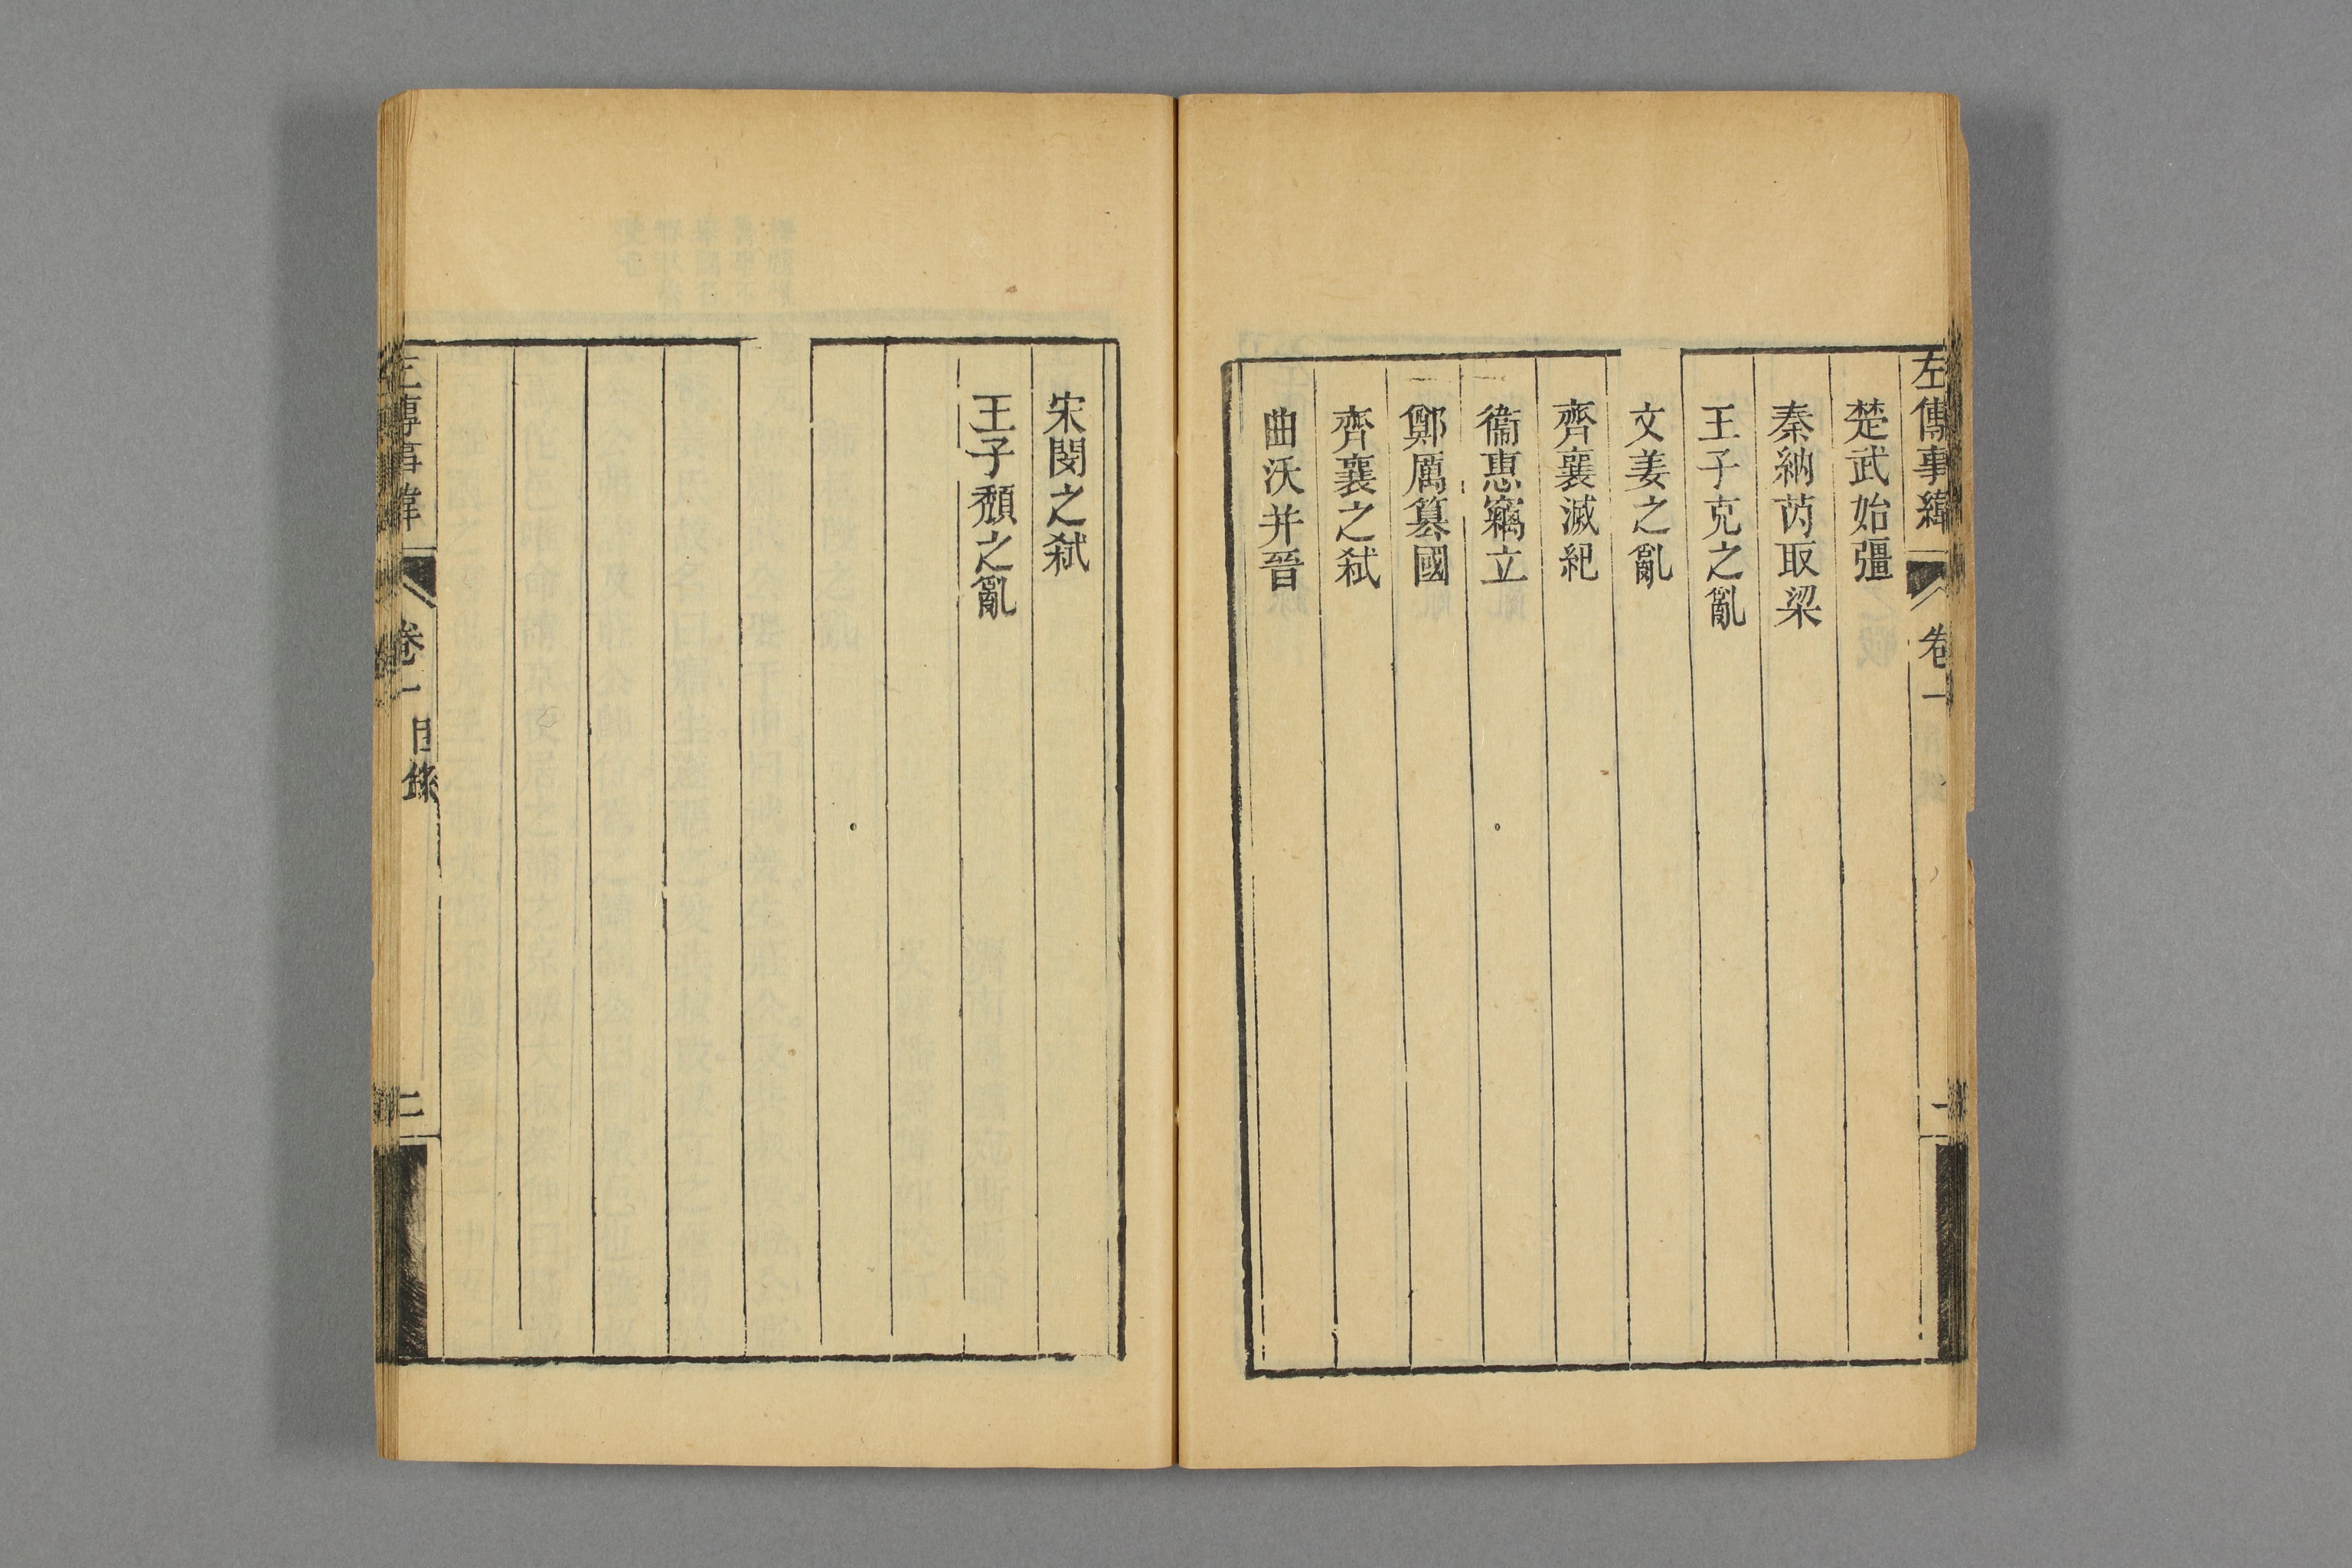 左傳事緯
卷一
一
楚武始彊
秦納芮取梁
王子克之亂
文姜之亂
齊襄滅紀
衞惠竊立
鄭厲篡國
齊襄之弒
曲沃并晉
宋閔之弒
王子頹之亂
左傳事緯
卷一
目錄
二